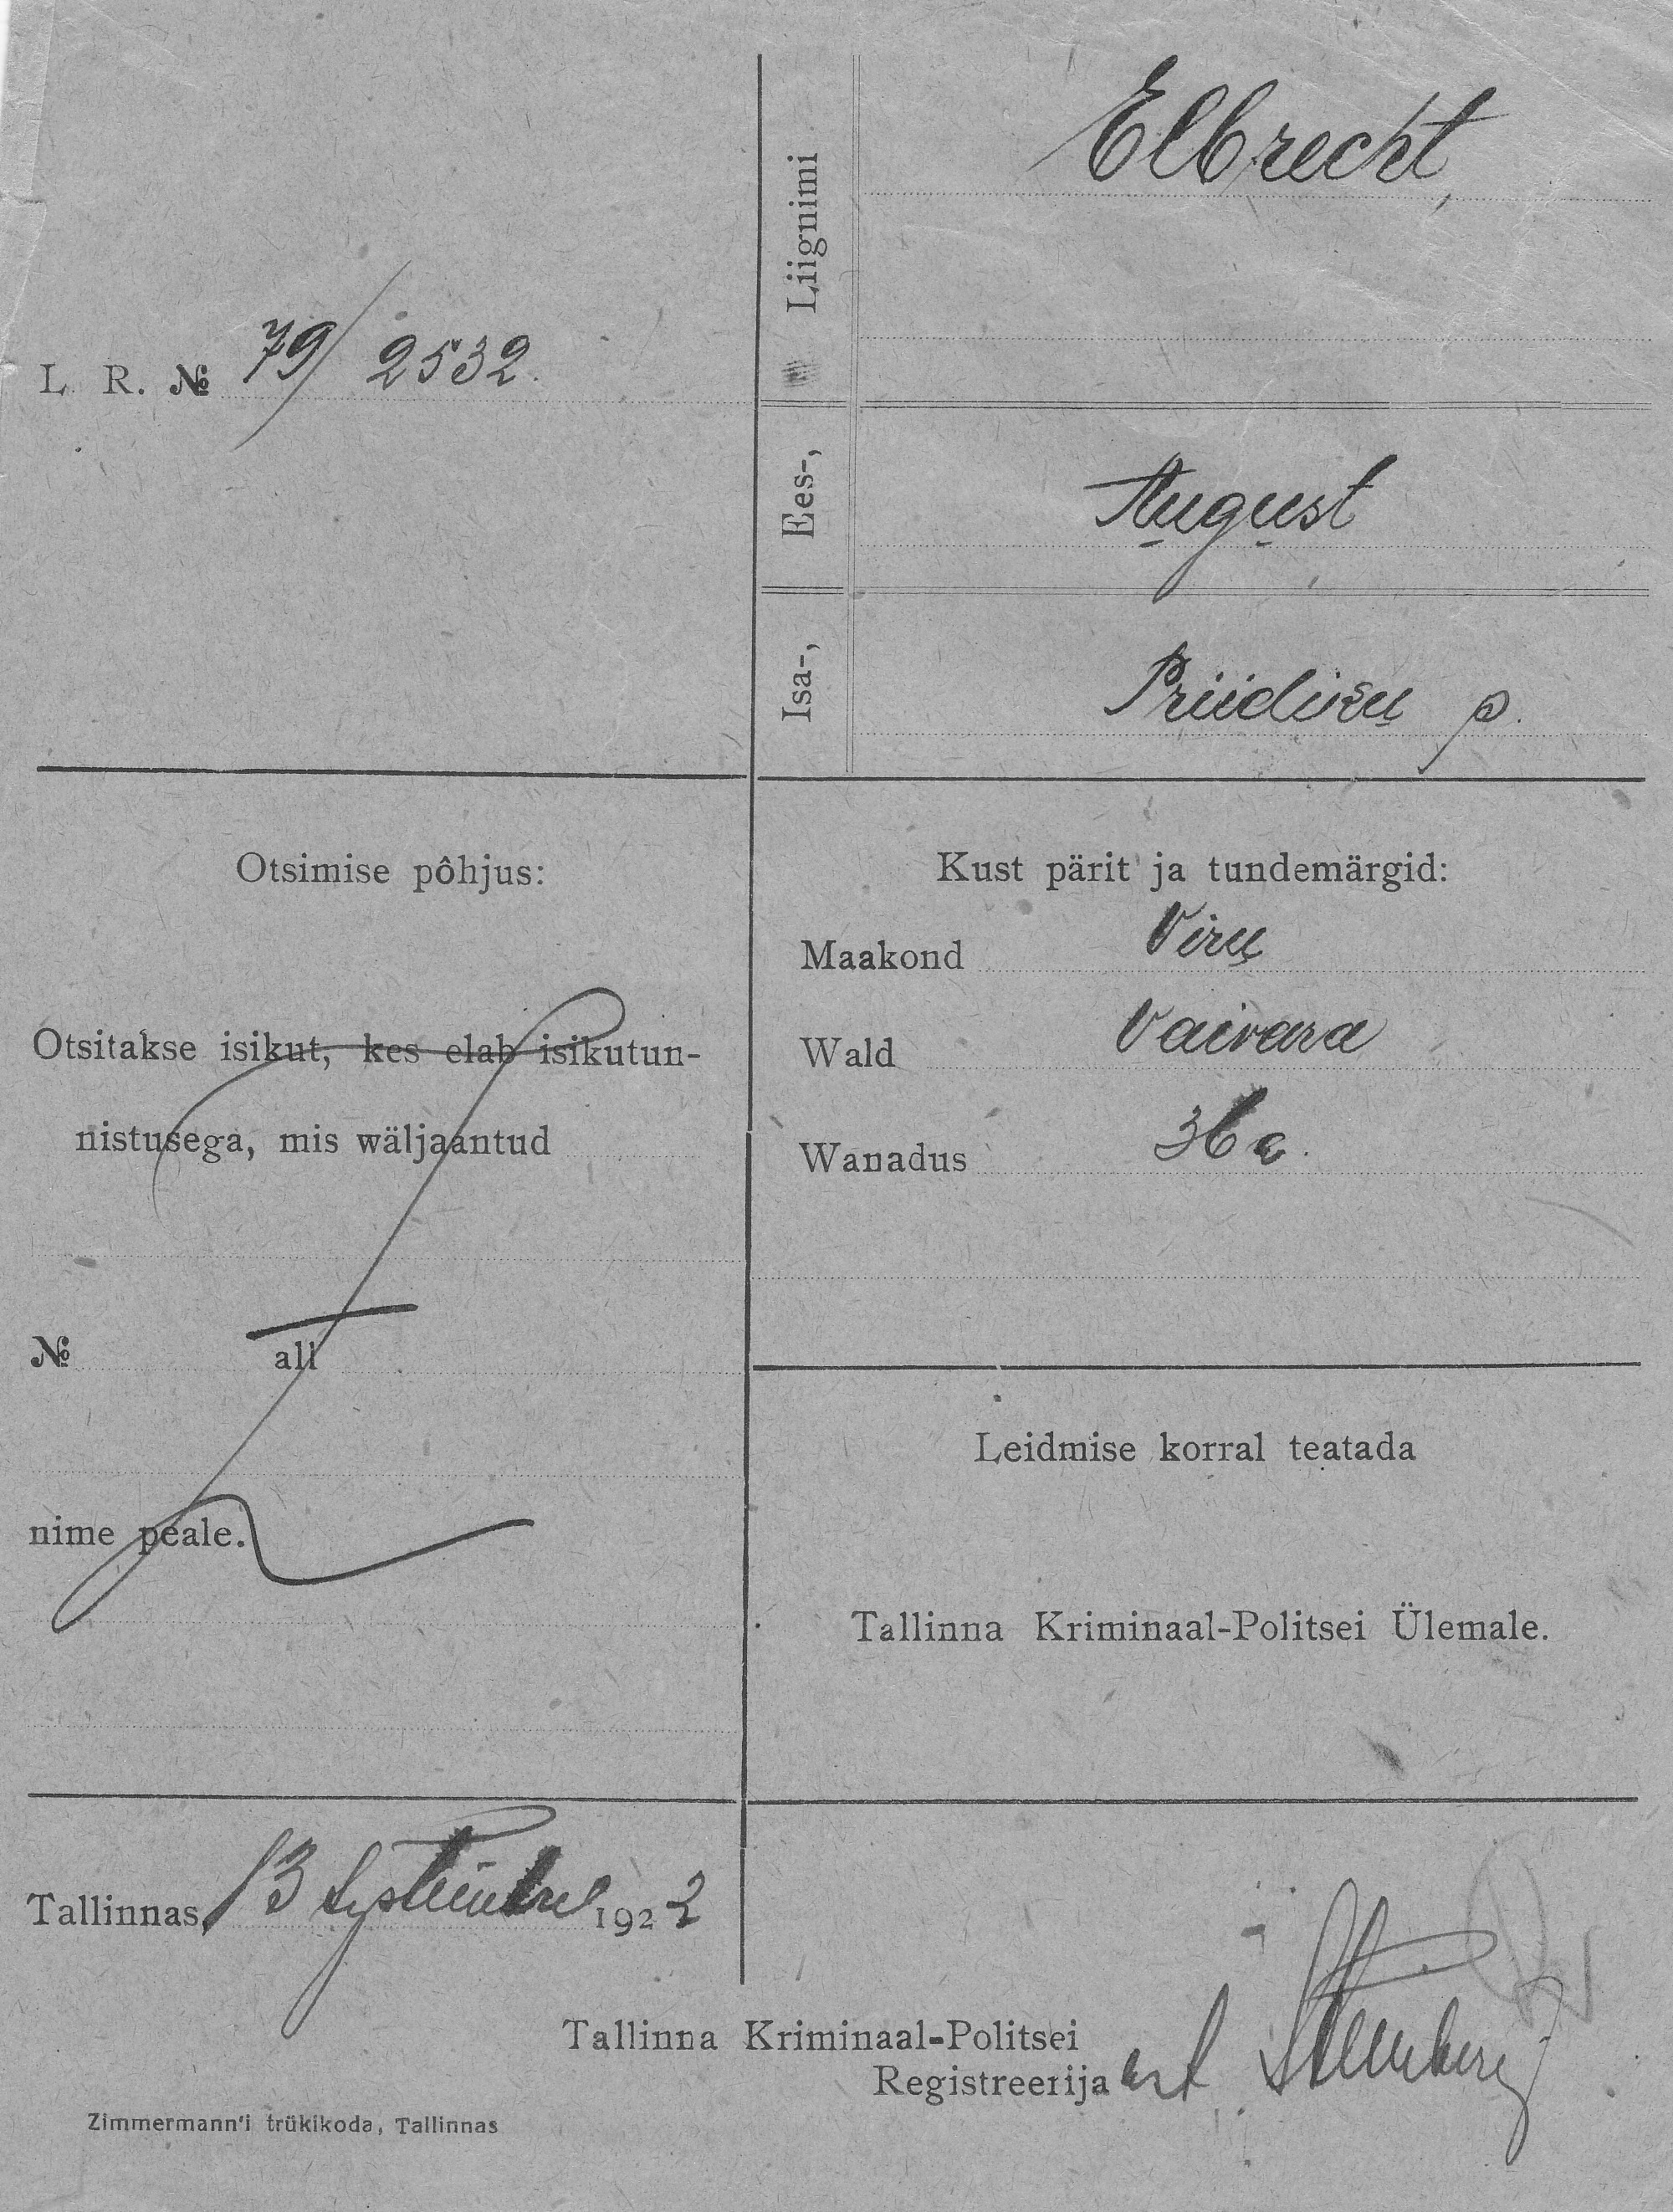 Liignimi
Elbrecht
L. R. № 79/2532.
Ees-,
August
Isa-,
Priidiku p.
Otsimise pôhjus:
Otsitakse isikut, kes elab isikutun-
nistusega, mis wäljaantud
№ all
nime peale.
Kust pärit ja tundemärgid:
Maakond Viru
Wald Vaivara
Wanadus 36 a.
Leidmise korral teatada
Tallinna Kriminaal-Politsei Ülemale.
Tallinnas, 13 Septembril 1922
Tallinna Kriminaal-Politsei
Registreerija
Zimmermann'i trükikoda, Tallinnas